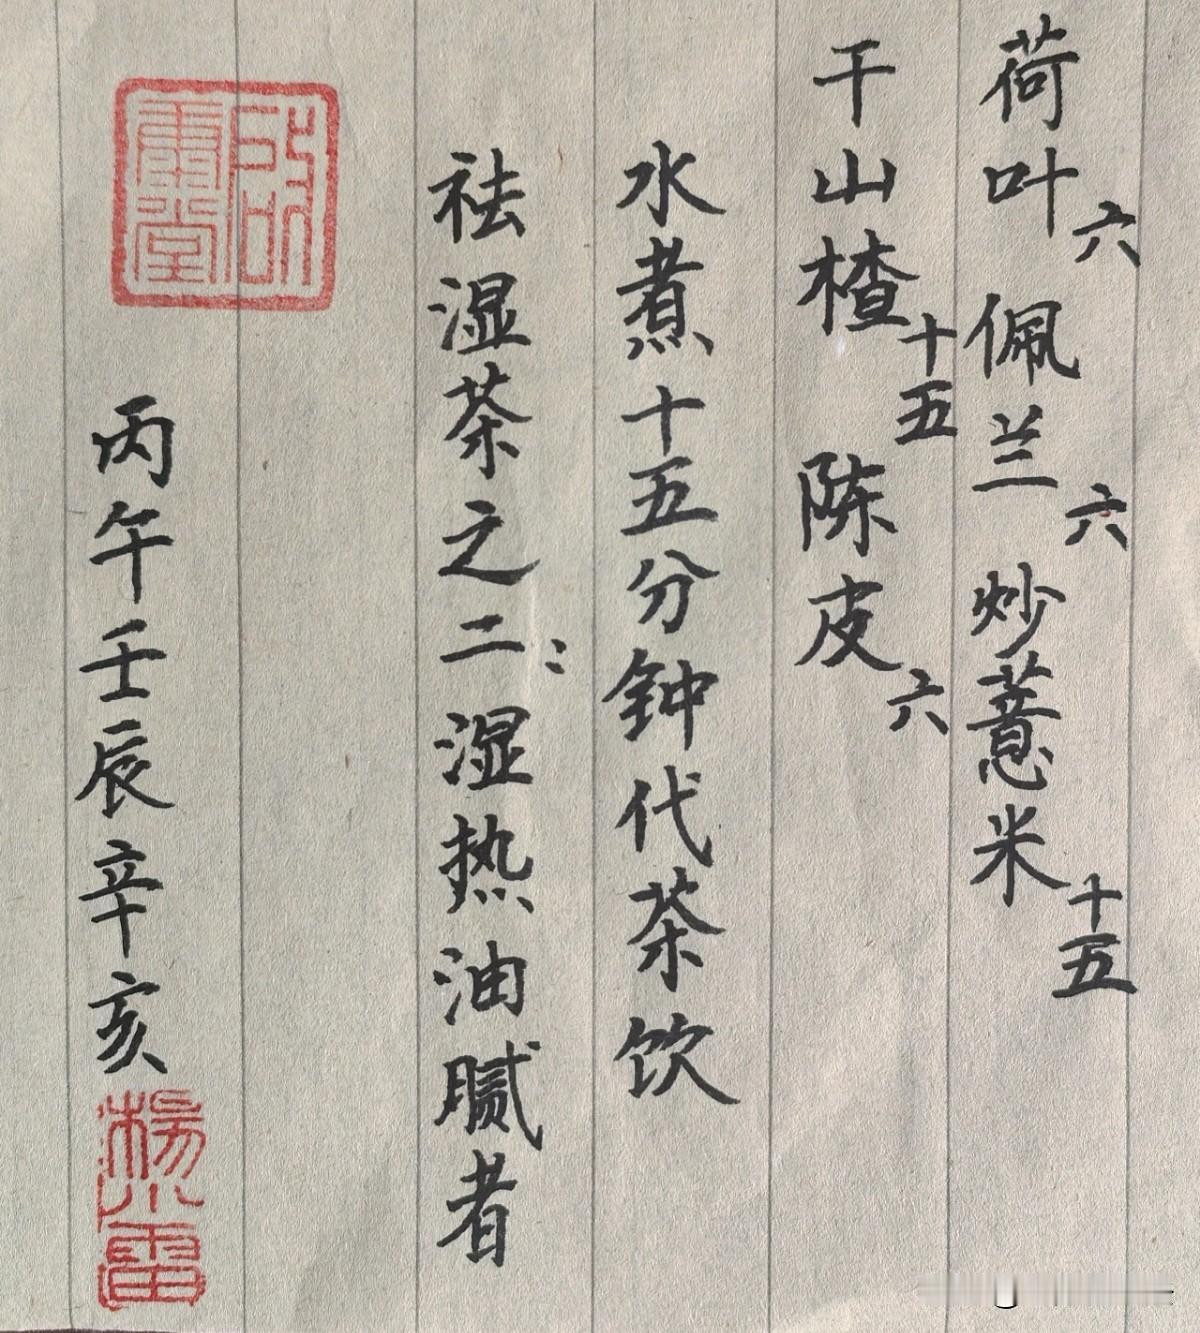 荷叶六 佩兰六 炒薏米十五
干山楂十五 陈皮六
水煮十五分钟代茶饮
祛湿茶之二：湿热油腻者
丙午壬辰辛亥